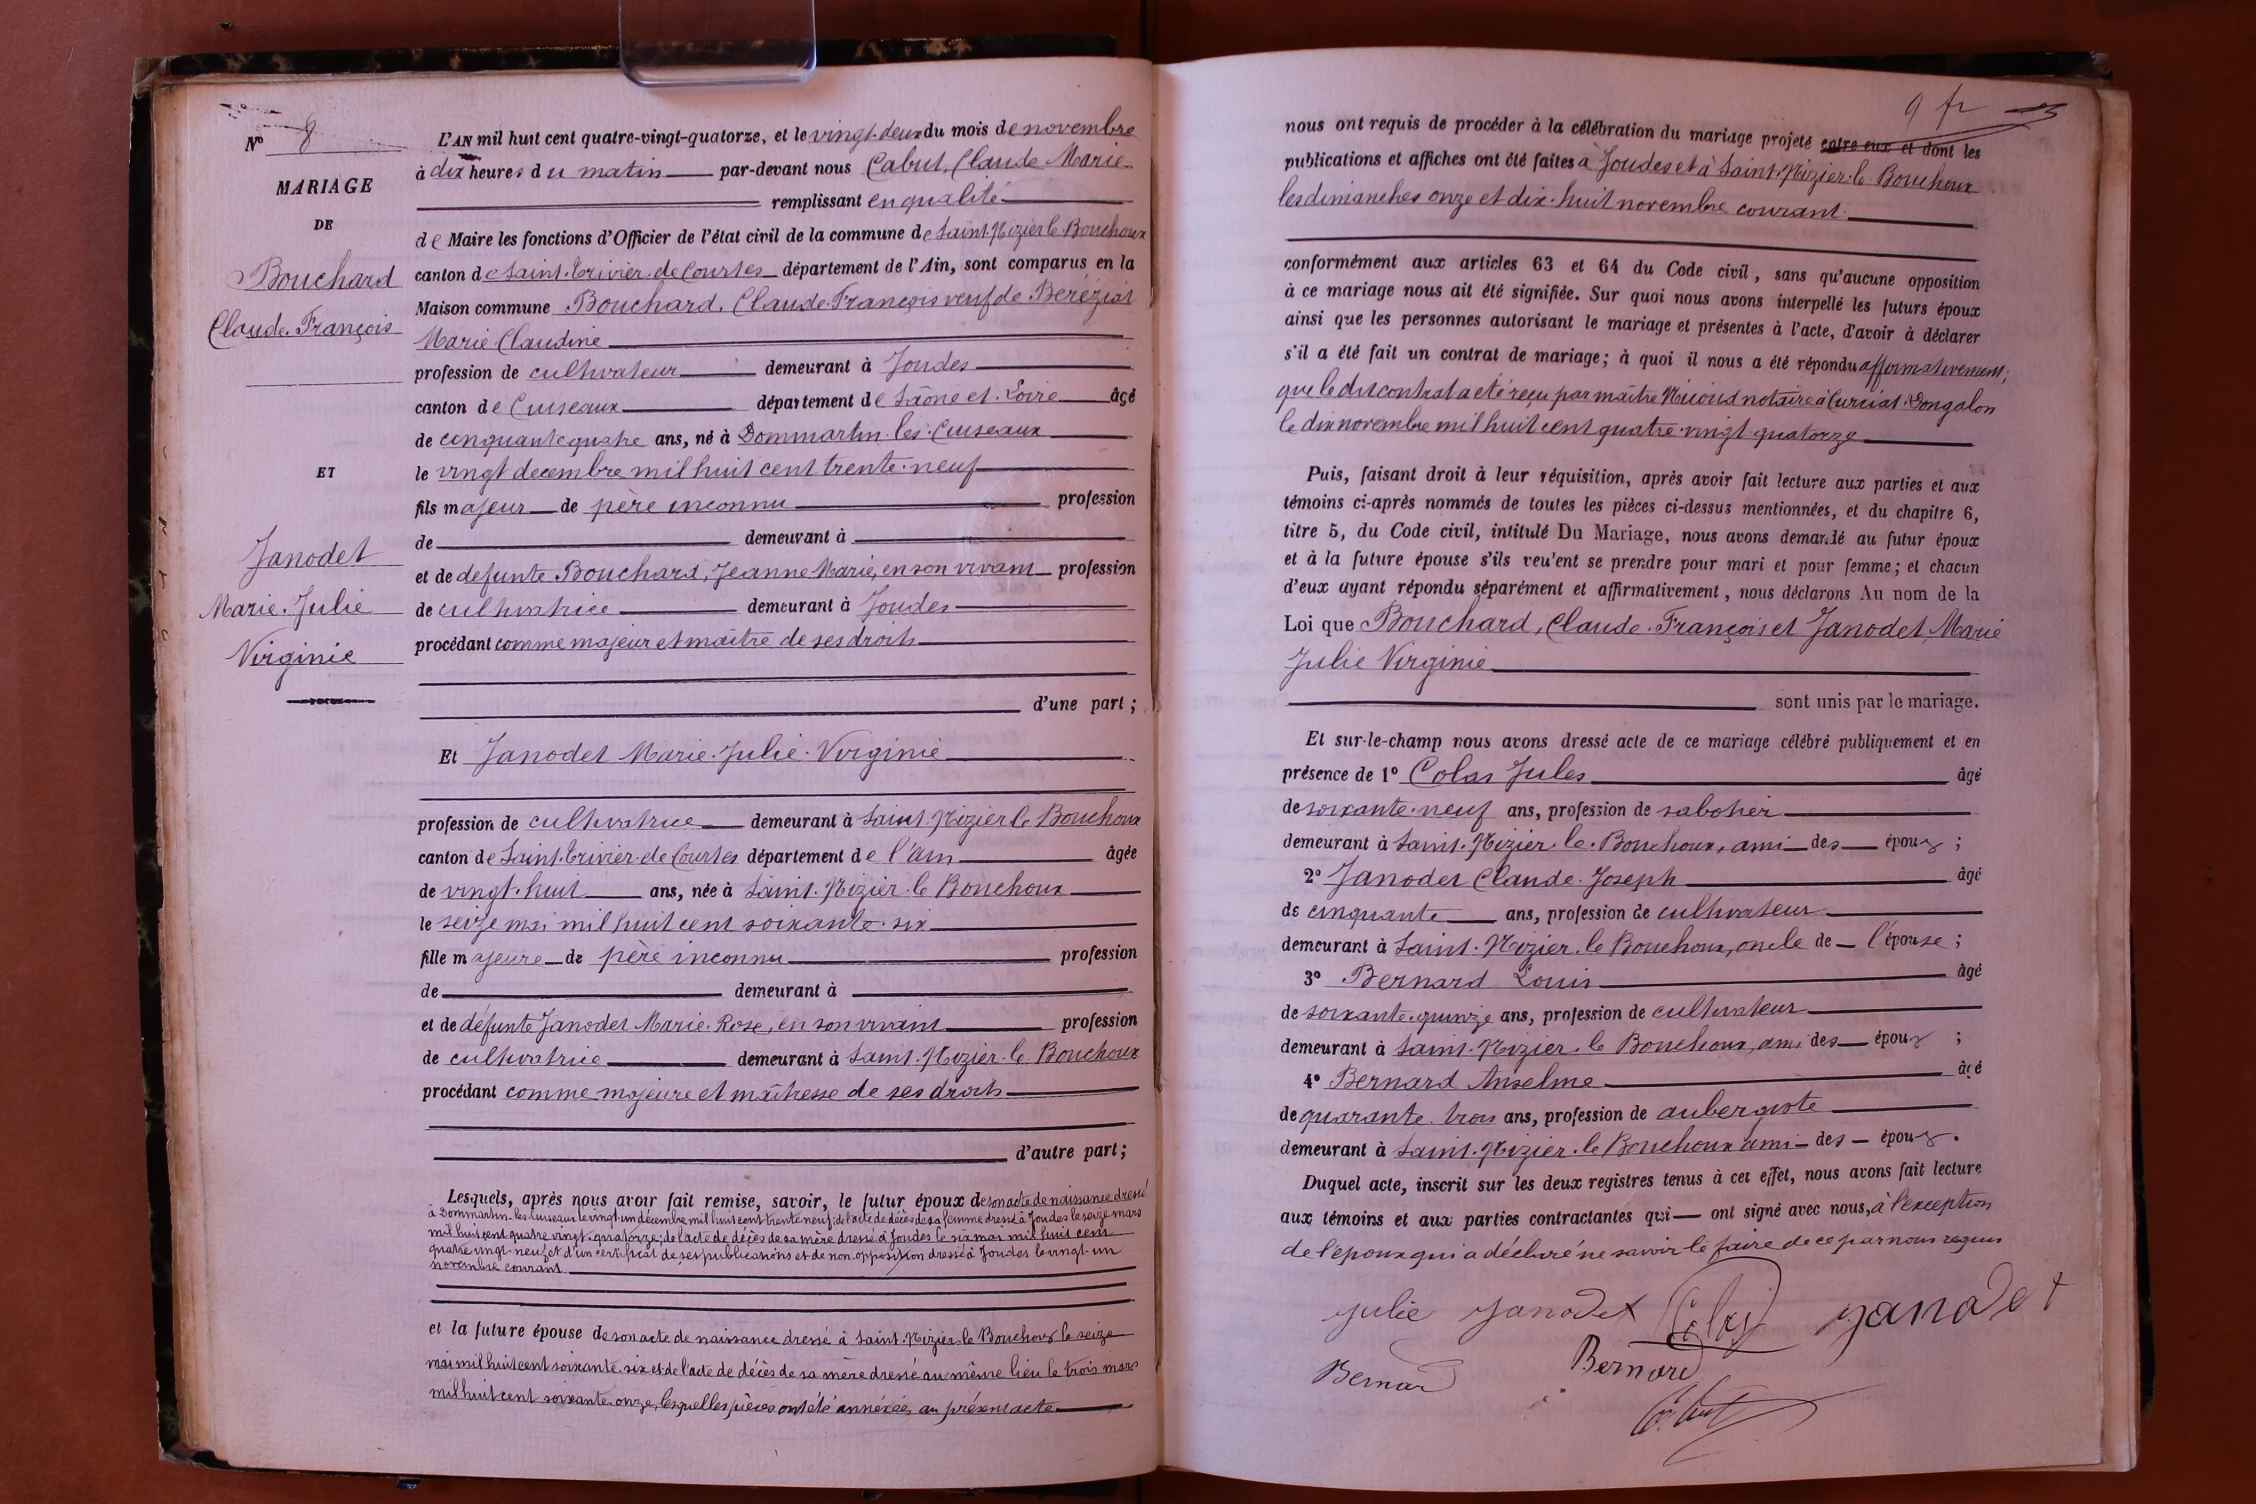 Nº 8
MARIAGE
DE
Bouchard
Claude. François
ET
Janodet
Marie. Julie
Virginie
L'AN mil huit cent quatre-vingt-quatorze, et le vingt-deux du mois de novembre
à dix heures du matin par-devant nous Cabut, Claude Marie
remplissant en qualité
de Maire les fonctions d'Officier de l'état civil de la commune de Saint-Nizier le Bouchoux
canton de Saint-Trivier-de Courtes département de l'Ain, sont comparus en la
Maison commune Bouchard, Claude-François veuf de Beréziat
Marie Claudine
profession de cultivateur demeurant à Joudes
canton de Cuiseaux département de Saône et-Loire âgé
de cinquante quatre ans, né à Dommartin-les-Cuiseaux
le vingt decembre mil huit cent trente-neuf
fils majeur de père inconnu profession
de demeurant à
et de défunte Bouchard, Jeanne-Marie, en son vivant profession
de cultivatrice demeurant à Joudes
procédant comme majeur et maître de ses droits
d'une part ;
Et Janodet Marie-Julie-Virginie
profession de cultivatrice demeurant à Saint-Nizier le Bouchoux
canton de Saint-Trivier-de Courtes département de l'Ain âgée
de vingt-huit ans, née à Saint-Nizier-le Bouchoux
le seize mai mil huit cent soixante-six
fille majeure de père inconnu profession
de demeurant à
et de défunte Janodet Marie-Rose, en son vivant profession
de cultivatrice demeurant à Saint-Nizier-le Bouchoux
procédant comme majeure et maîtresse de ses droits
d'autre part ;
Lesquels, après nous avoir fait remise, savoir, le futur époux de son acte de naissance dressé
à Dommartin-les-Cuiseaux le vingt-un décembre mil huit cent trente neuf; de l'acte de décès de sa femme dressé à Joudes le seize mars
mil huit cent quatre vingt-quatorze; de l'acte de décès de sa mère dressé à Joudes le six mai mil huit cent
quatre vingt-neuf et d'un certificat de ses publications et de non opposition dressé à Joudes le vingt-un
novembre courant
et la future épouse de son acte de naissance dressé à Saint-Nizier-le Bouchoux le seize
mai mil huit cent soixante-six et de l'acte de décès de sa mère dressé au même lieu le trois mars
mil huit cent soixante-onze, lesquelles pièces ont été annexées au présent acte
9 fr
nous ont requis de procéder à la célébration du mariage projeté entre eux et dont les
publications et affiches ont été faites à Joudes et à Saint-Nizier-le Bouchoux
les dimanches onze et dix-huit novembre courant
conformément aux articles 63 et 64 du Code civil, sans qu'aucune opposition
à ce mariage nous ait été signifiée. Sur quoi nous avons interpellé les futurs époux
ainsi que les personnes autorisant le mariage et présentes à l'acte, d'avoir à déclarer
s'il a été fait un contrat de mariage; à quoi il nous a été répondu affirmativement,
que le dit contrat a été reçu par maître Nicoud notaire à Curciat-Dongalon
le dix novembre mil huit cent quatre-vingt-quatorze
Puis, faisant droit à leur réquisition, après avoir fait lecture aux parties et aux
témoins ci-après nommés de toutes les pièces ci-dessus mentionnées, et du chapitre 6,
titre 5, du Code civil, intitulé Du Mariage, nous avons demandé au futur époux
et à la future épouse s'ils veulent se prendre pour mari et pour femme; et chacun
d'eux ayant répondu séparément et affirmativement, nous déclarons Au nom de la
Loi que Bouchard, Claude-François et Janodet, Marie
Julie Virginie
sont unis par le mariage.
Et sur-le-champ nous avons dressé acte de ce mariage célébré publiquement et en
présence de 1º Colas Jules âgé
de soixante-neuf ans, profession de sabotier
demeurant à Saint-Nizier-le-Bouchoux, ami des époux ;
2º Janodet Claude-Joseph âgé
de cinquante ans, profession de cultivateur
demeurant à Saint-Nizier-le Bouchoux, oncle de l'épouse ;
3º Bernard Louis âgé
de soixante-quinze ans, profession de cultivateur
demeurant à Saint-Nizier-le Bouchoux, ami des époux ;
4º Bernard Anselme âgé
de quarante-trois ans, profession de aubergiste
demeurant à Saint-Nizier-le Bouchoux ami des époux.
Duquel acte, inscrit sur les deux registres tenus à cet effet, nous avons fait lecture
aux témoins et aux parties contractantes qui ont signé avec nous, à l'exception
de l'époux qui a déclaré ne savoir le faire de ce par nous requis
Julie Janodet Colas Janodet
Bernard Bernard
Cabut